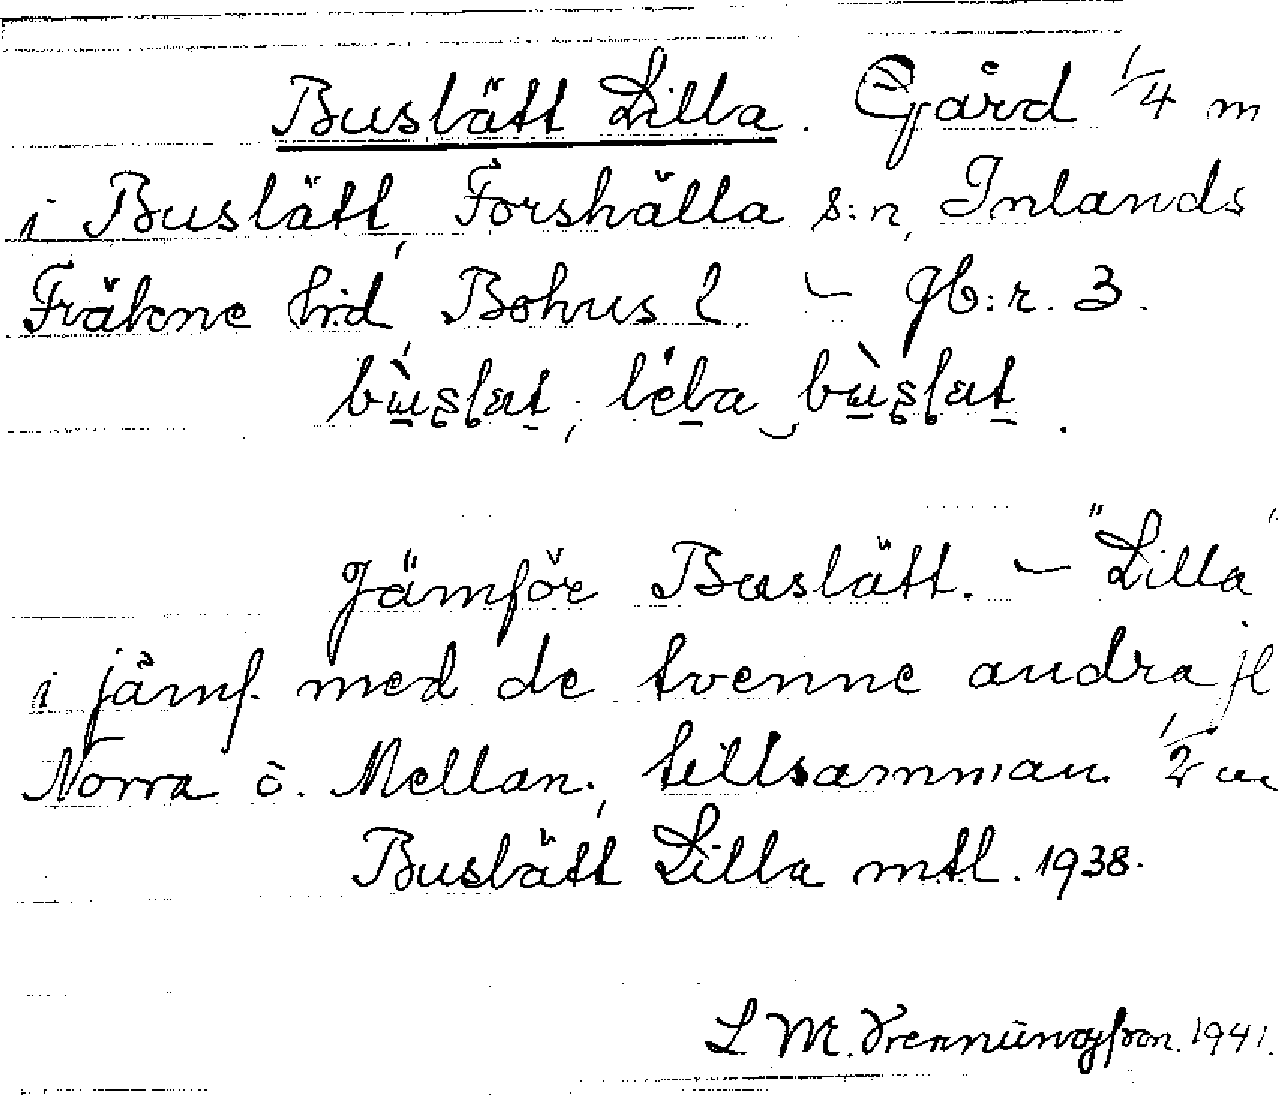 Buslätt Lilla. Gård 1/4 m
i Buslätt, Forshälla s:n, Inlands
Fräkne hrd, Bohus l – jb:r. 3.
Jämför Buslätt. – "Lilla"
i jämf. med de tvenne andra jl
Norra o. Mellan, tillsamman 1/2 m
Buslätt Lilla mtl. 1938.
L M. 1941.